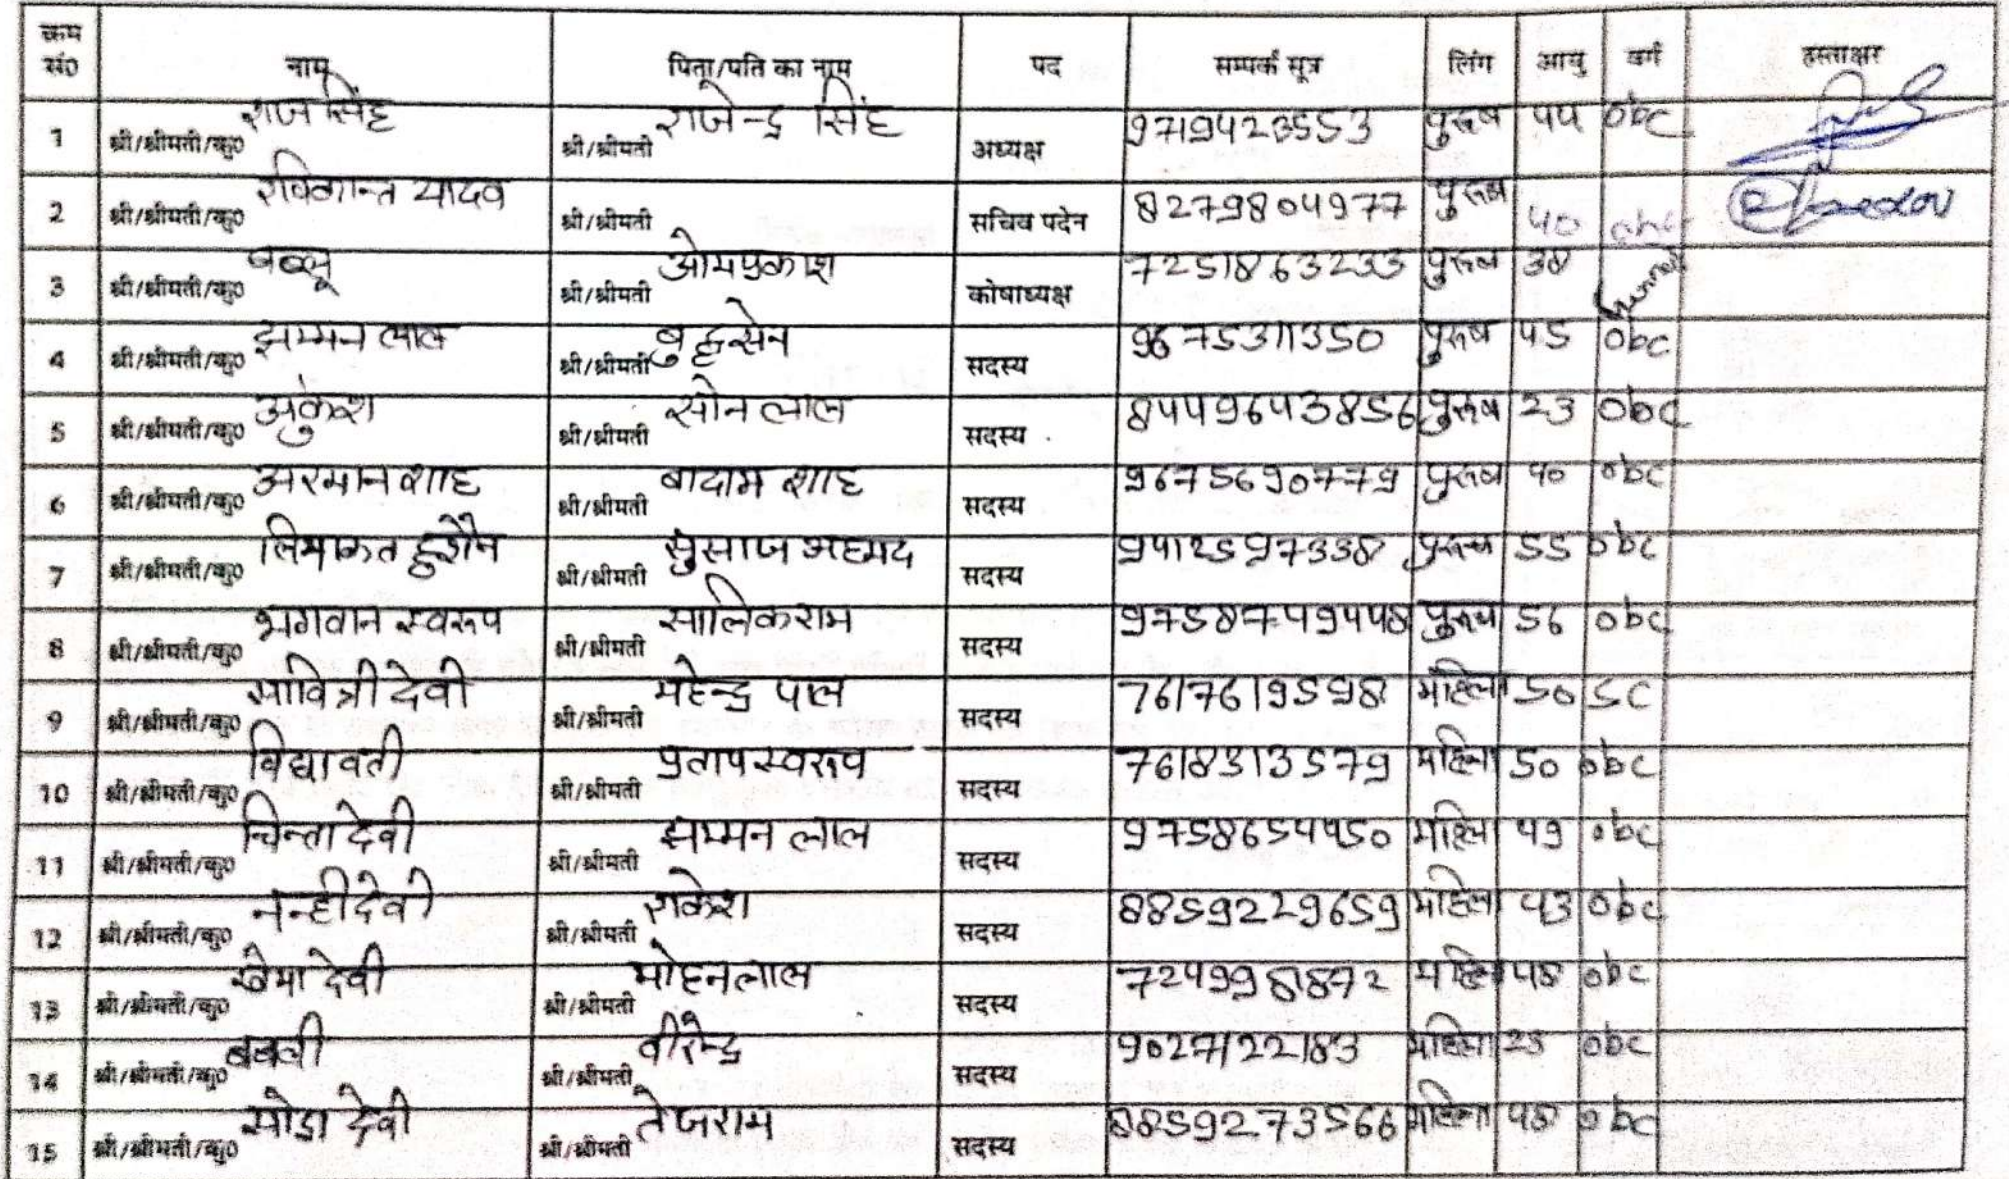 क्रम सं0 नाम पिता/पति का नाम पद सम्पर्क सूत्र लिंग आयु वर्ग हस्ताक्षर
1 श्री/श्रीमती/कु0 राज सिंह श्री/श्रीमती राजेन्द्र सिंह अध्यक्ष 9719423553 पुरूष 44 obc
2 श्री/श्रीमती/कु0 रविकान्त यादव श्री/श्रीमती सचिव पदेन 8279804977 पुरूष 40
3 श्री/श्रीमती/कु0 बब्लू श्री/श्रीमती ओमप्रकाश कोषाध्यक्ष 7251863233 पुरूष 38
4 श्री/श्रीमती/कु0 झम्मन लाल श्री/श्रीमती बुद्धसेन सदस्य 9675311350 पुरूष 45 obc
5 श्री/श्रीमती/कु0 अंकुश श्री/श्रीमती सोन लाल सदस्य 8449643856 पुरूष 23 obc
6 श्री/श्रीमती/कु0 अरमान शाह श्री/श्रीमती बादाम शाह सदस्य 9675690779 पुरूष 40 obc
7 श्री/श्रीमती/कु0 लियाकत हुशैन श्री/श्रीमती अहमद सदस्य 9412597338 पुरूष 55 obc
8 श्री/श्रीमती/कु0 भगवान स्वरूप श्री/श्रीमती सालिकराम सदस्य 9758749448 पुरूष 56 obc
9 श्री/श्रीमती/कु0 सावित्री देवी श्री/श्रीमती महेन्द्र पाल सदस्य 7617619598 महिला 50 SC
10 श्री/श्रीमती/कु0 विद्यावती श्री/श्रीमती प्रताप स्वरूप सदस्य 7618313579 महिला 50 obc
11 श्री/श्रीमती/कु0 चिन्ता देवी श्री/श्रीमती झम्मन लाल सदस्य 9758654450 महिला 49 obc
12 श्री/श्रीमती/कु0 नन्ही देवी श्री/श्रीमती राकेश सदस्य 88592229659 महिला 43 obc
13 श्री/श्रीमती/कु0 खेमा देवी श्री/श्रीमती मोहनलाल सदस्य 7249981872 महिला 48 obc
14 श्री/श्रीमती/कु0 बबली श्री/श्रीमती वीरेन्द्र सदस्य 9027122183 महिला 25 obc
15 श्री/श्रीमती/कु0 सोडा देवी श्री/श्रीमती तेजराम सदस्य 8859273566 महिला 48 obc